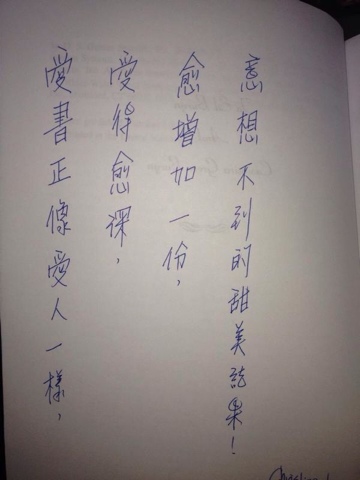 愛書正像愛人一樣,
愛得愈深,
愈增加一份,
意想不到的甜美結果!